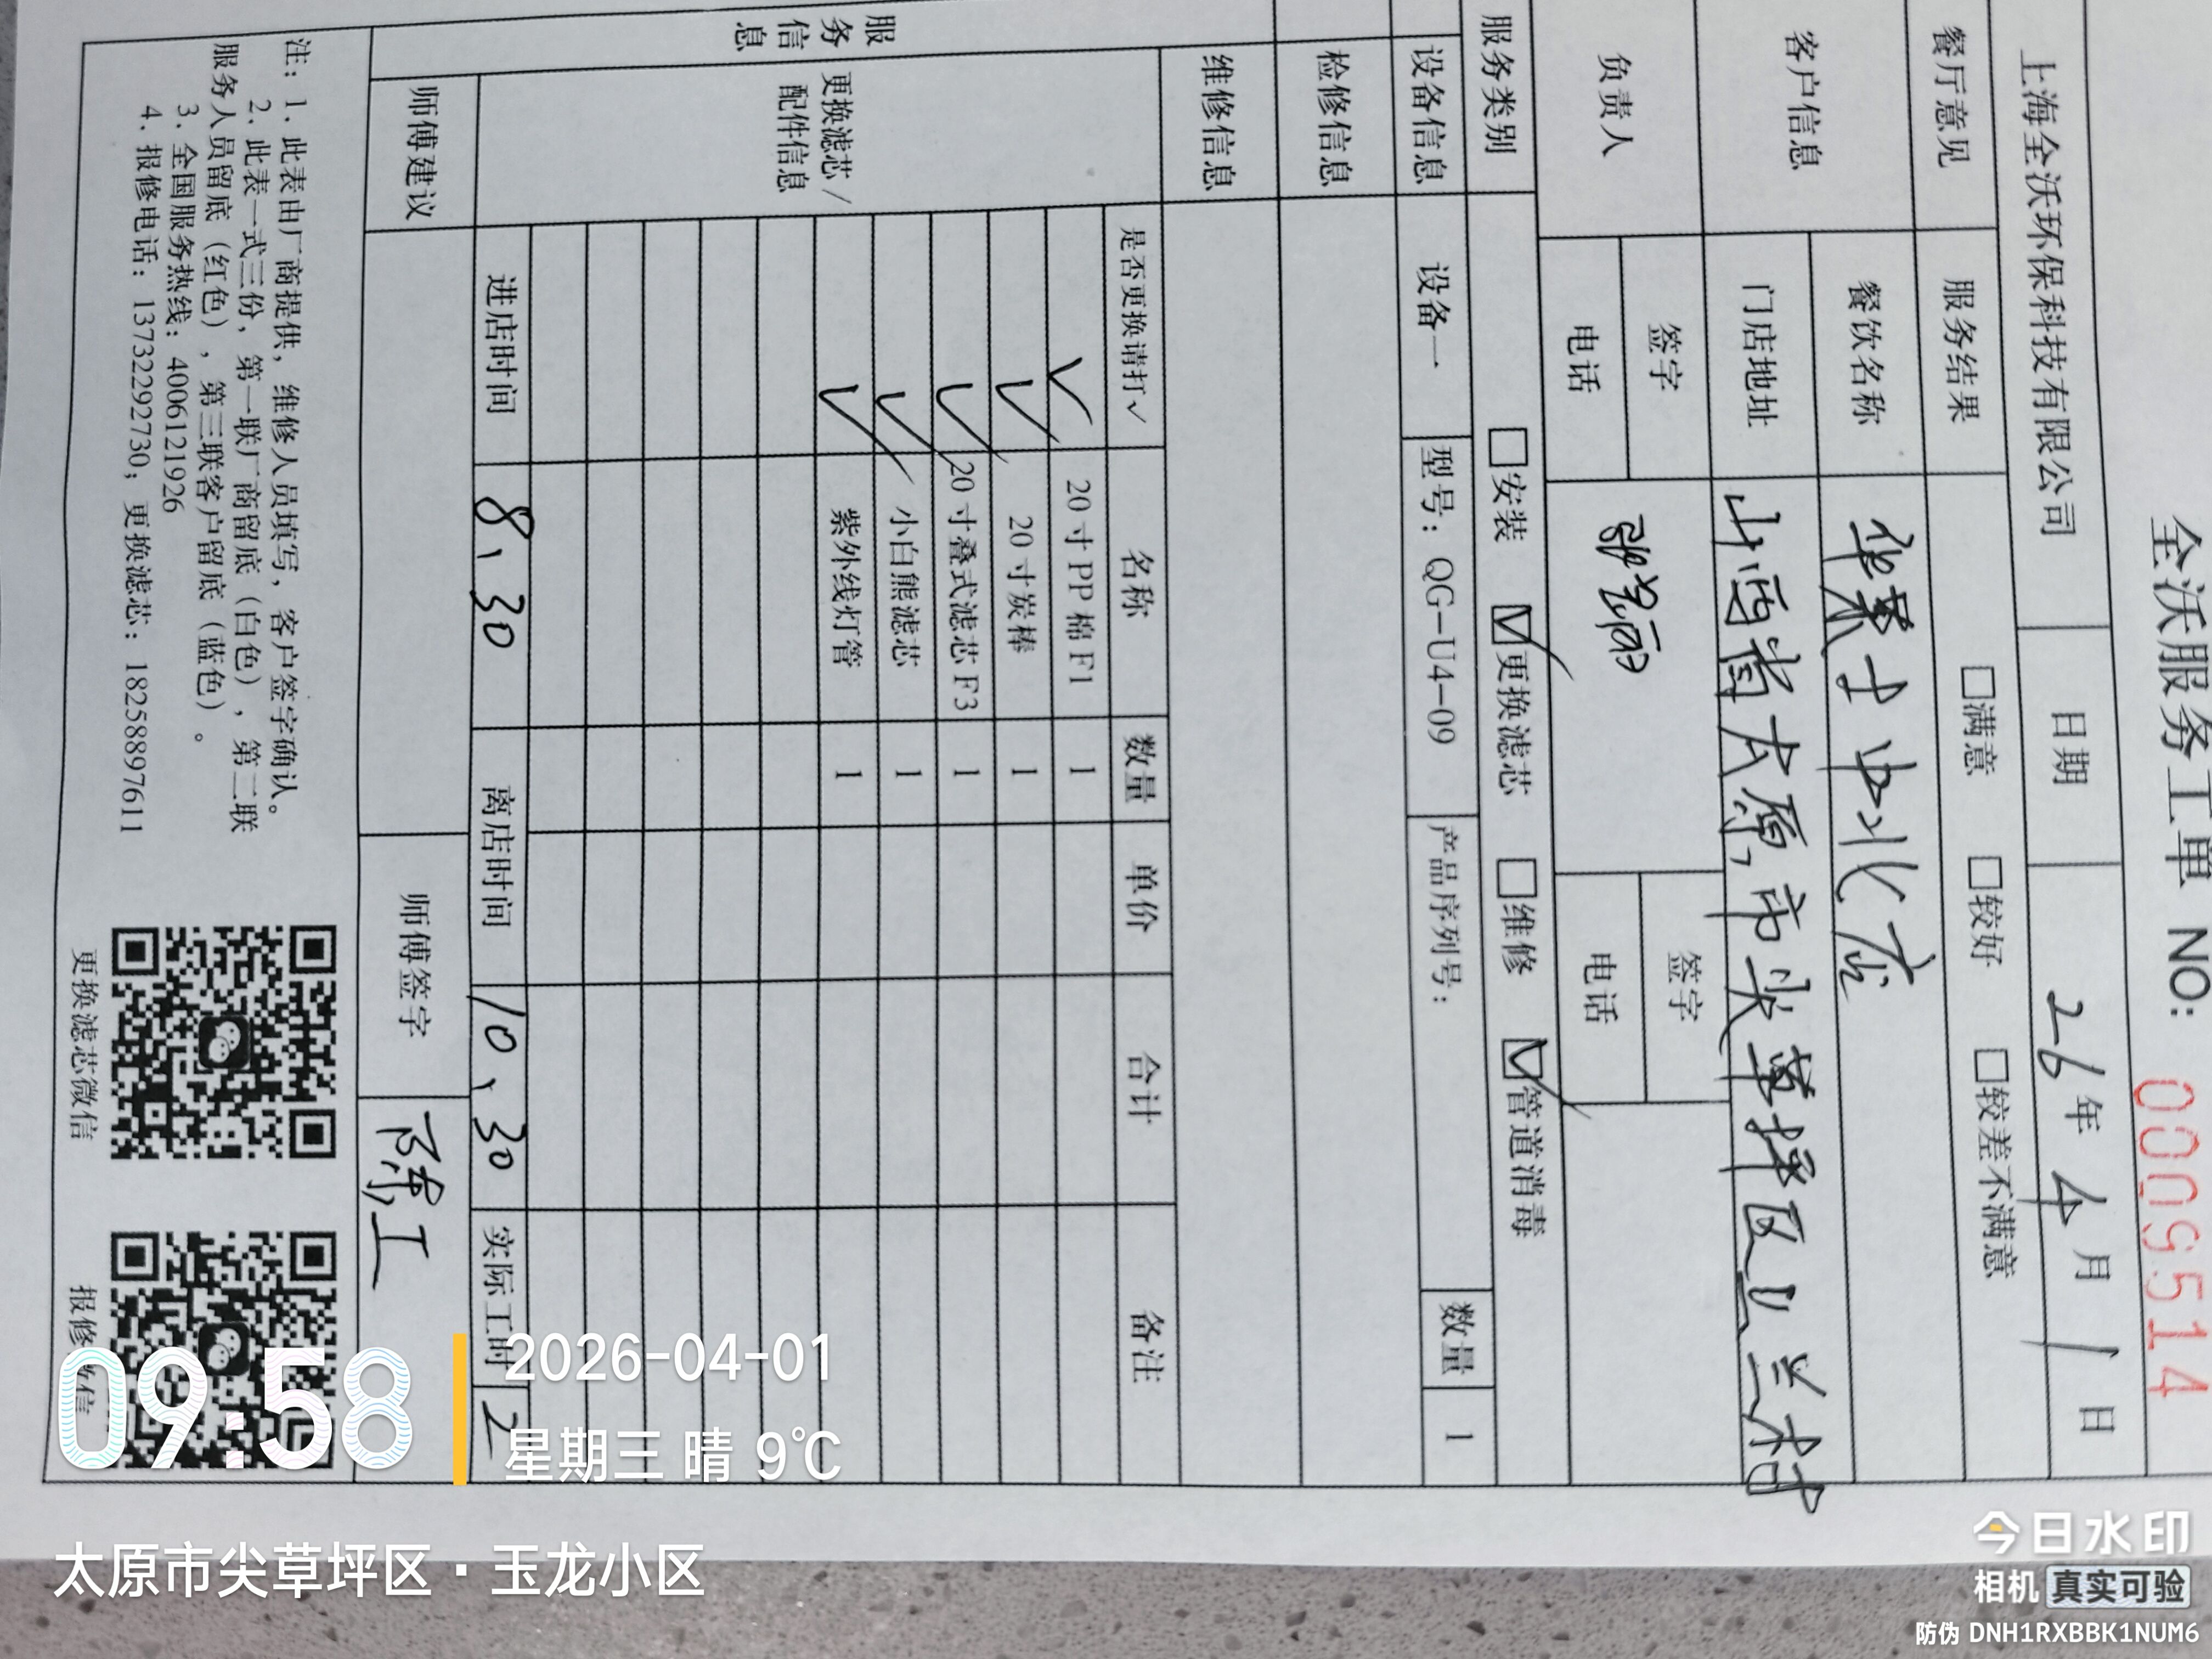 全沃服务工单 NO: 0009514
上海全沃环保科技有限公司 日期 26年4月1日
餐厅意见 服务结果 □满意 □较好 □较差不满意
客户信息 餐饮名称 华莱士中北店
门店地址 山西省太原市尖草坪区上兰村
负责人 签字 签字
电话 电话
服务类别 □安装 ☑更换滤芯 □维修 ☑管道消毒
设备信息 设备一 型号：QG-U4-09 产品序列号： 数量 1
检修信息
维修信息
服务信息
更换滤芯/配件信息
是否更换请打√ 名称 数量 单价 合计 备注
√ 20寸PP棉F1 1
√ 20寸炭棒 1
√ 20寸叠式滤芯F3 1
√ 小白熊滤芯 1
√ 紫外线灯管 1
进店时间 8、30 离店时间 10、30 实际工时 2
师傅建议 师傅签字 陈工
注：1. 此表由厂商提供，维修人员填写，客户签字确认。
2. 此表一式三份，第一联厂商留底（白色），第二联
服务人员留底（红色），第三联客户留底（蓝色）。
3. 全国服务热线：4006121926
4. 报修电话：13732292730；更换滤芯：18258897611
更换滤芯微信
报修微信
09:58
2026-04-01
星期三 晴 9℃
太原市尖草坪区·玉龙小区
今日水印
相机 真实可验
防伪 DNH1RXBBK1NUM6